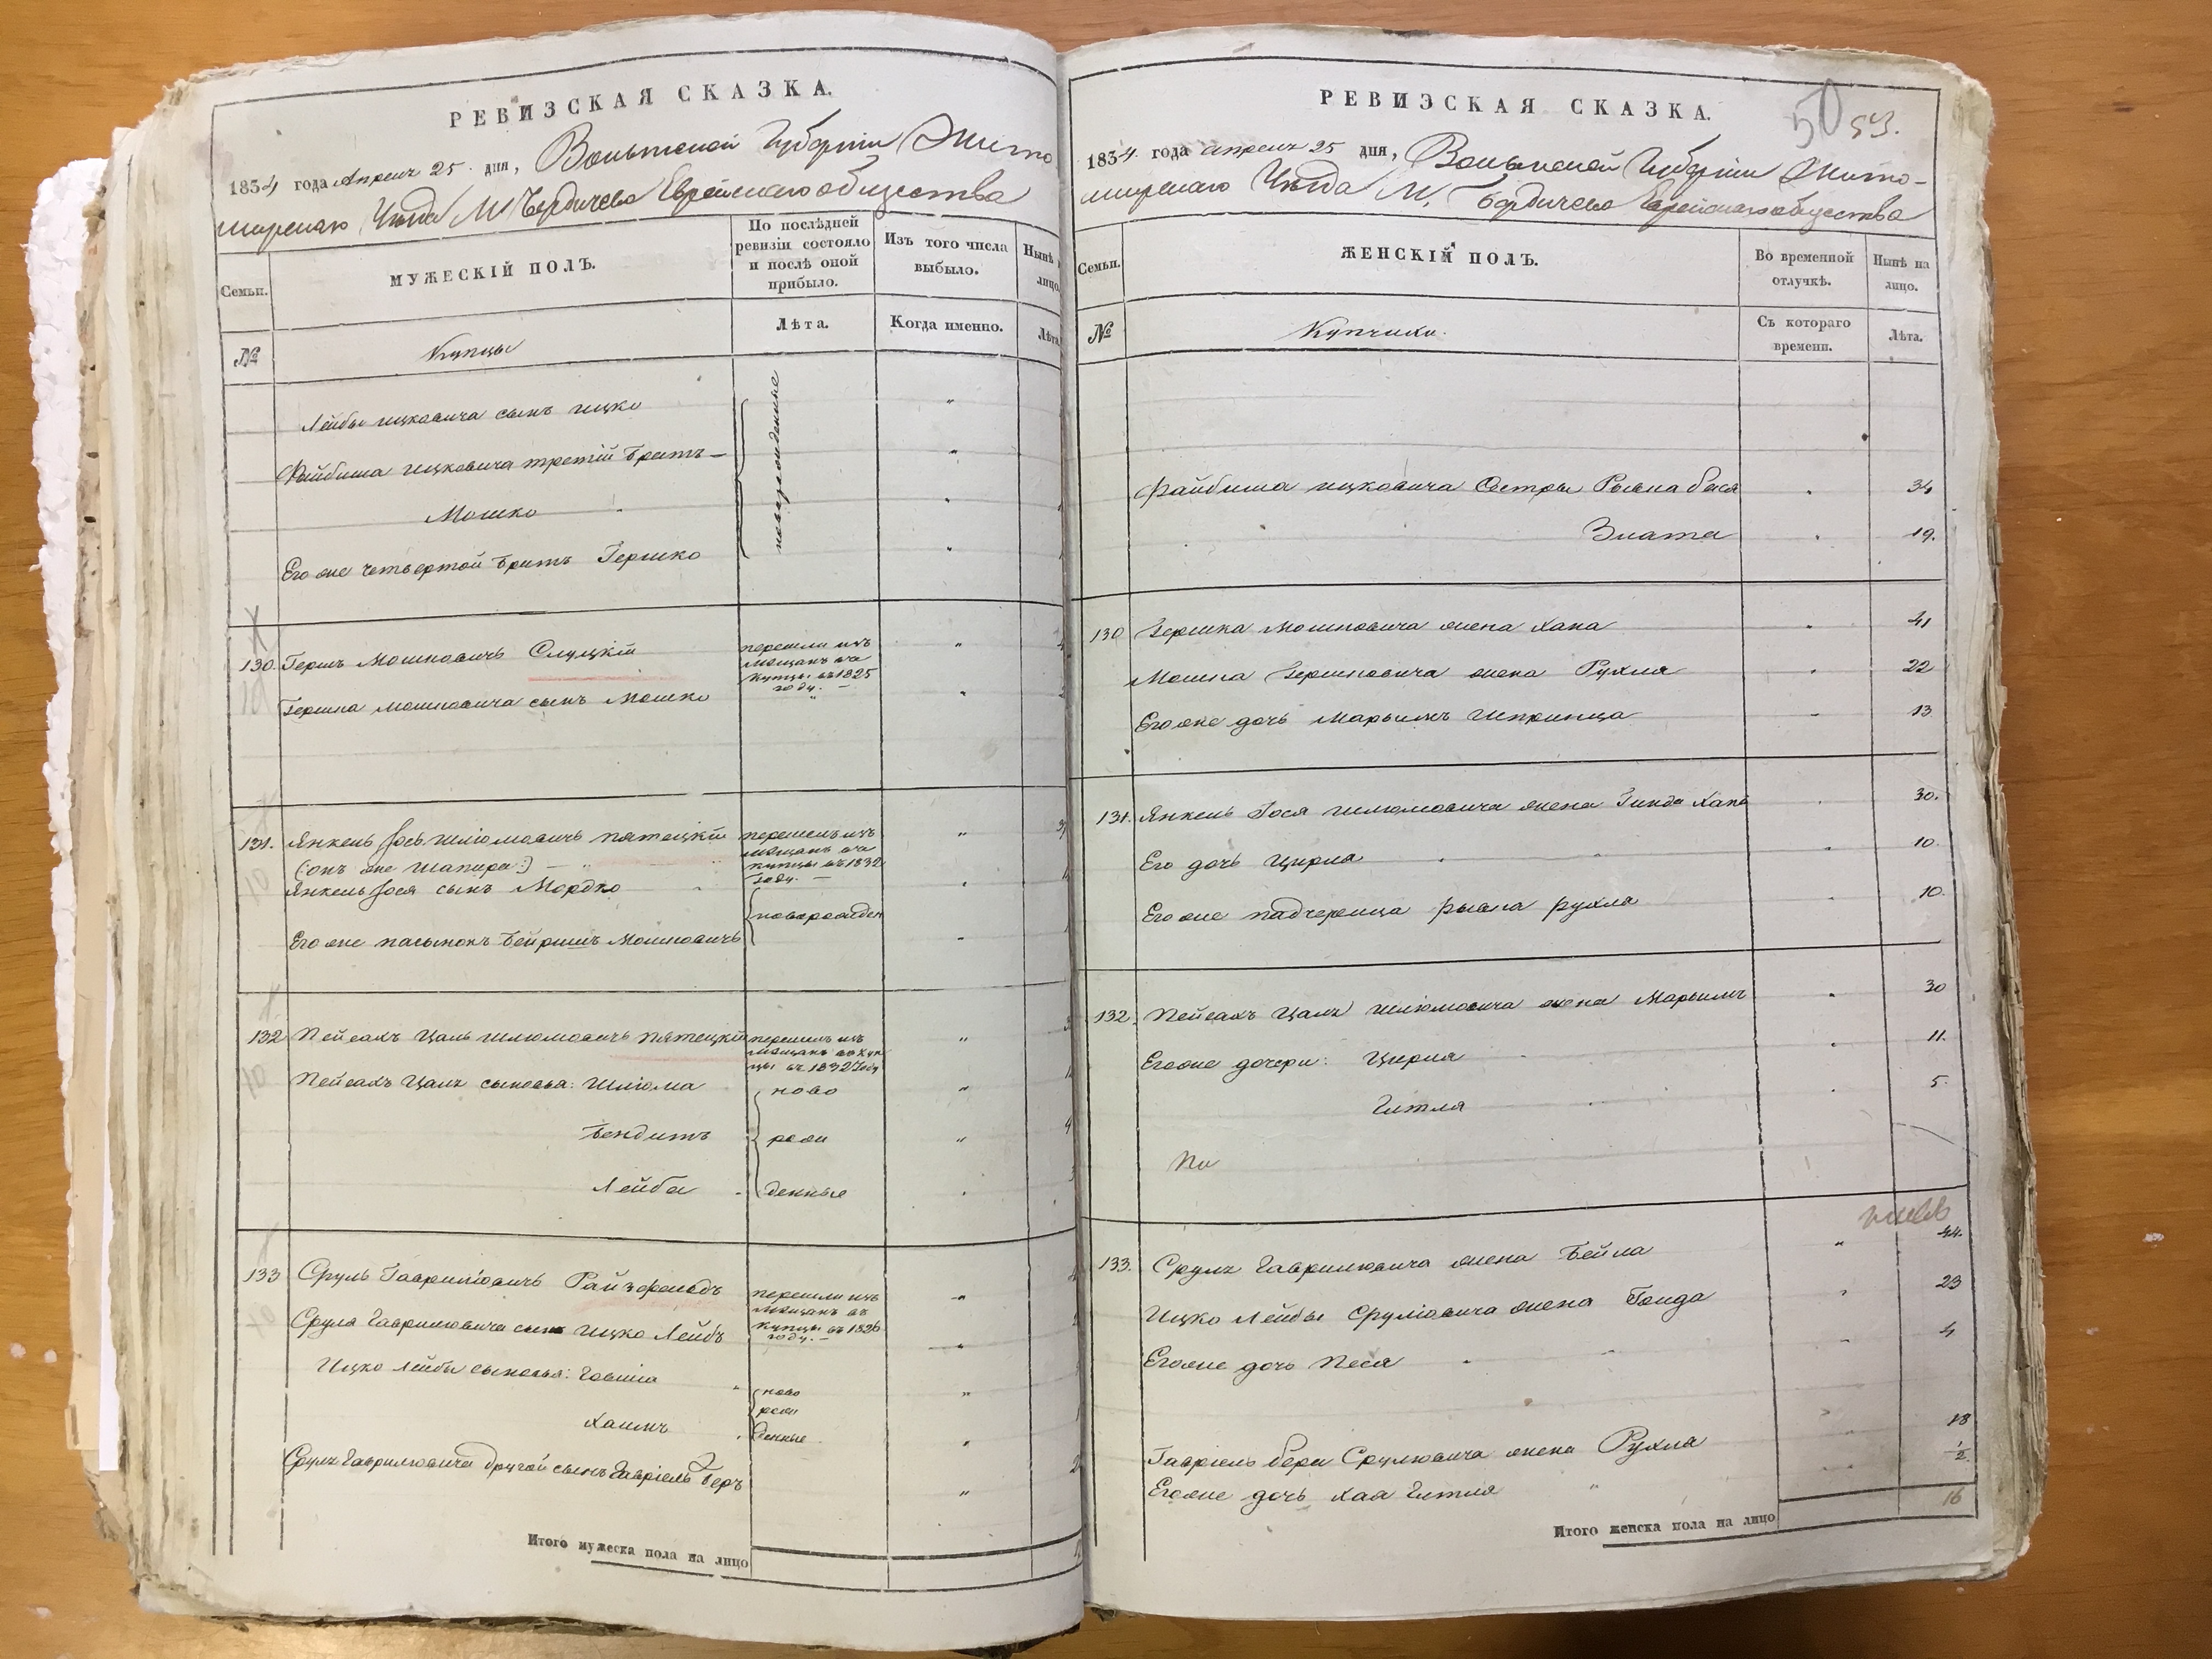 РЕВИЗСКАЯ СКАЗКА.
1834 года Апреля 25 дня, Волынской Губерніи Жито
мирскаго Уѣзда М. Бердичева Еврейскаго общества
Семьи.
МУЖЕСКІЙ ПОЛЪ.
По послѣдней ревизіи состояло и послѣ оной прибыло.
Изъ того числа выбыло.
Нынѣ
лицо.
№
Купцы
Лѣта.
Когда именно.
Лѣта
Лейбы ицковича сынъ ицко
Файбиша ицковича третій братъ
Мошко
Его же четвертой братъ Гершко
новорожденные
130. Гершъ Мошковичъ Слуцкій
перешли изъ
мещанъ въ
купцы въ 1825
году.
Гершка мошковича сынъ Мошко
131. Янкель Іось шліомовичъ пятецкій
(:онъ же шапира:)
перешелъ изъ
мещанъ въ
купцы въ 1832
году.
Янкель Іося сынъ Мордко
новорожден
Его же пасынокъ Бейришъ Мошковичъ
132 Пейсахъ Цаль шліомовичъ пятецкій
перешелъ изъ
мещанъ въ куп
цы въ 1832 году
Пейсахъ Цаля сыновья: шліома
ново
Бендитъ
рож
Лейба
денные
133 Сруль Гаврилювичъ Райзфельдъ
перешли изъ
мещанъ въ
купцы въ 1826
году.
Сруля Гаврилювича сынъ ицко Лейбъ
Ицко Лейбы сыновья: Говшіа
ново
рож
Хаимъ
денные
Сруля Гаврилювича другой сынъ Гавріель Беръ
2
Итого мужеска пола на лицо
РЕВИЗСКАЯ СКАЗКА.
50 53.
1834 года апреля 25 дня, Волынской Губерніи Жито-
мирскаго Уѣзда М. Бердичева Еврейскаго общества
Семьи.
ЖЕНСКІЙ ПОЛЪ.
Во временной отлучкѣ.
Нынѣ на лицо.
№
Купчихи
Съ котораго времени.
Лѣта.
Файбиша ицковича Сестры Рывка бася 34
Злата 19.
130 Гершка Мошковича жена Хана 41
Мошка Гершковича жена Рухля 22
Его же дочь Марьямъ Шпринца 13
131. Янкель Іося шліомовича жена Гинда Хана 30.
Его дочь Цирля 10.
Его же падчерица рывка рухля 10.
132. Пейсахъ Цаля шліомовича жена Марьямъ 30
Его же дочери: Цирля 11.
Гитля 5.
133. Сруля Гаврилювича жена Бейла 44.
Ицко Лейбы Сруліовича жена Гонда 23
Его же дочь Песя 4
Гавріель бера Срулювича жена Рухля 18
Его же дочь хая Гитля 1/2.
Итого женска пола на лицо 16